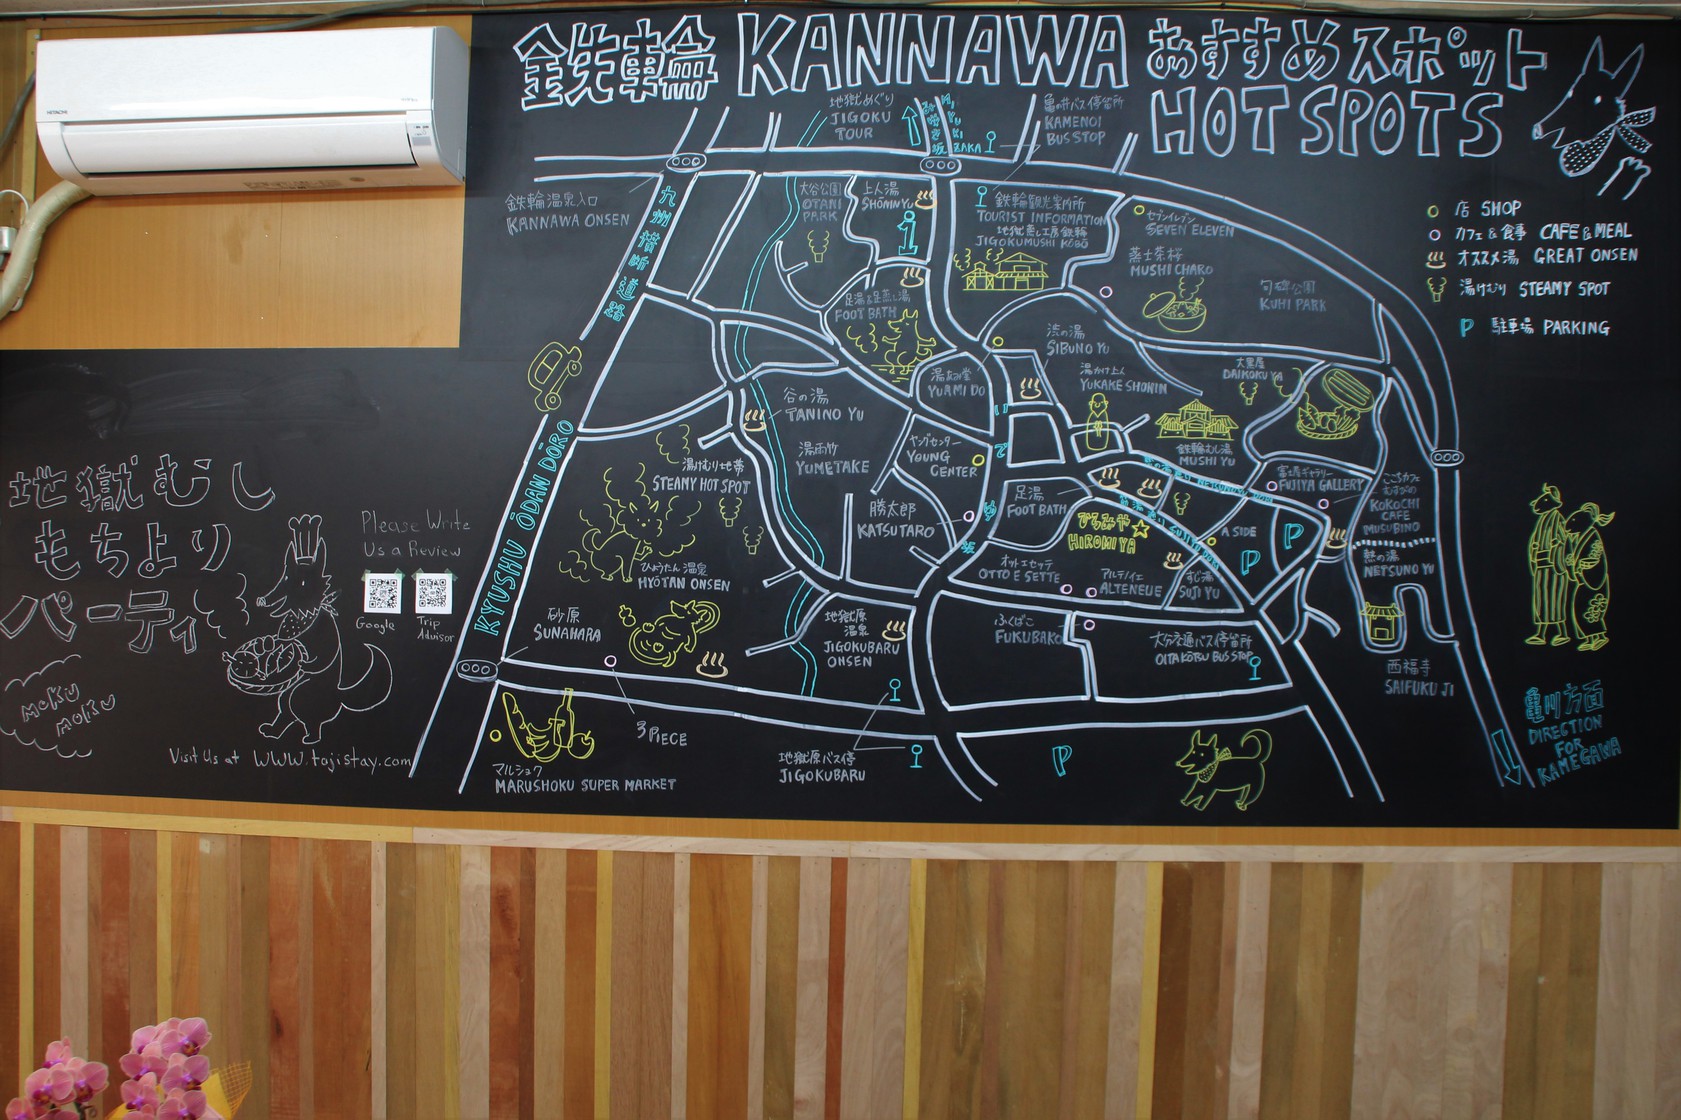 鉄輪 KANNAWA おすすめスポット
HOT SPOTS
HITACHI
地獄めぐり
JIGOKU
TOUR
亀の井バス停留所
KAMENOI
BUS STOP
鉄輪温泉入口
KANNAWA ONSEN
九州横断道路
KYUSHU ŌDAN DŌRO
大谷公園
OTANI
PARK
上人湯
SHŌNINYU
鉄輪観光案内所
TOURIST INFORMATION
地獄蒸し工房鉄輪
JIGOKUMUSHI KŌBŌ
セブンイレブン
SEVEN ELEVEN
蒸士茶桜
MUSHI CHARO
句碑公園
KUHI PARK
足湯&足蒸し湯
FOOT BATH
渋の湯
SIBUNO YU
湯かけ上人
YUKAKE SHONIN
大黒屋
DAIKOKUYA
YUAMI DO
谷の湯
TANINO YU
湯雨竹
YUMETAKE
ヤングセンター
YOUNG
CENTER
鉄輪むし湯
MUSHI YU
冨士屋ギャラリー
FUJIYA GALLERY
ここちカフェ
むすびの
KOKOCHI
CAFE
MUSUBINO
湯けむり地帯
STEAMY HOT SPOT
足湯
FOOT BATH
勝太郎
KATSUTARO
ひろみや
HIROMIYA
A SIDE
熱の湯
NETSUNO YU
ひょうたん温泉
HYŌTAN ONSEN
オットエセッテ
OTTO E SETTE
アルテノイエ
ALTENEUE
すじ湯
SUJI YU
砂原
SUNAHARA
地獄原
温泉
JIGOKUBARU
ONSEN
ふくばこ
FUKUBAKO
大分交通バス停留所
OITA KŌTSU BUS STOP
西福寺
SAIFUKU JI
3 PIECE
マルショク
MARUSHOKU SUPER MARKET
地獄原バス停
JIGOKUBARU
P
P
P
店 SHOP
カフェ&食事 CAFE & MEAL
オススメ湯 GREAT ONSEN
湯けむり STEAMY SPOT
P 駐車場 PARKING
亀川方面
DIRECTION
FOR
KAMEGAWA
地獄むし
もちより
パーティ
MOKU
MOKU
Please Write
Us a Review
Google
Trip
Advisor
Visit Us at www.tajistay.com